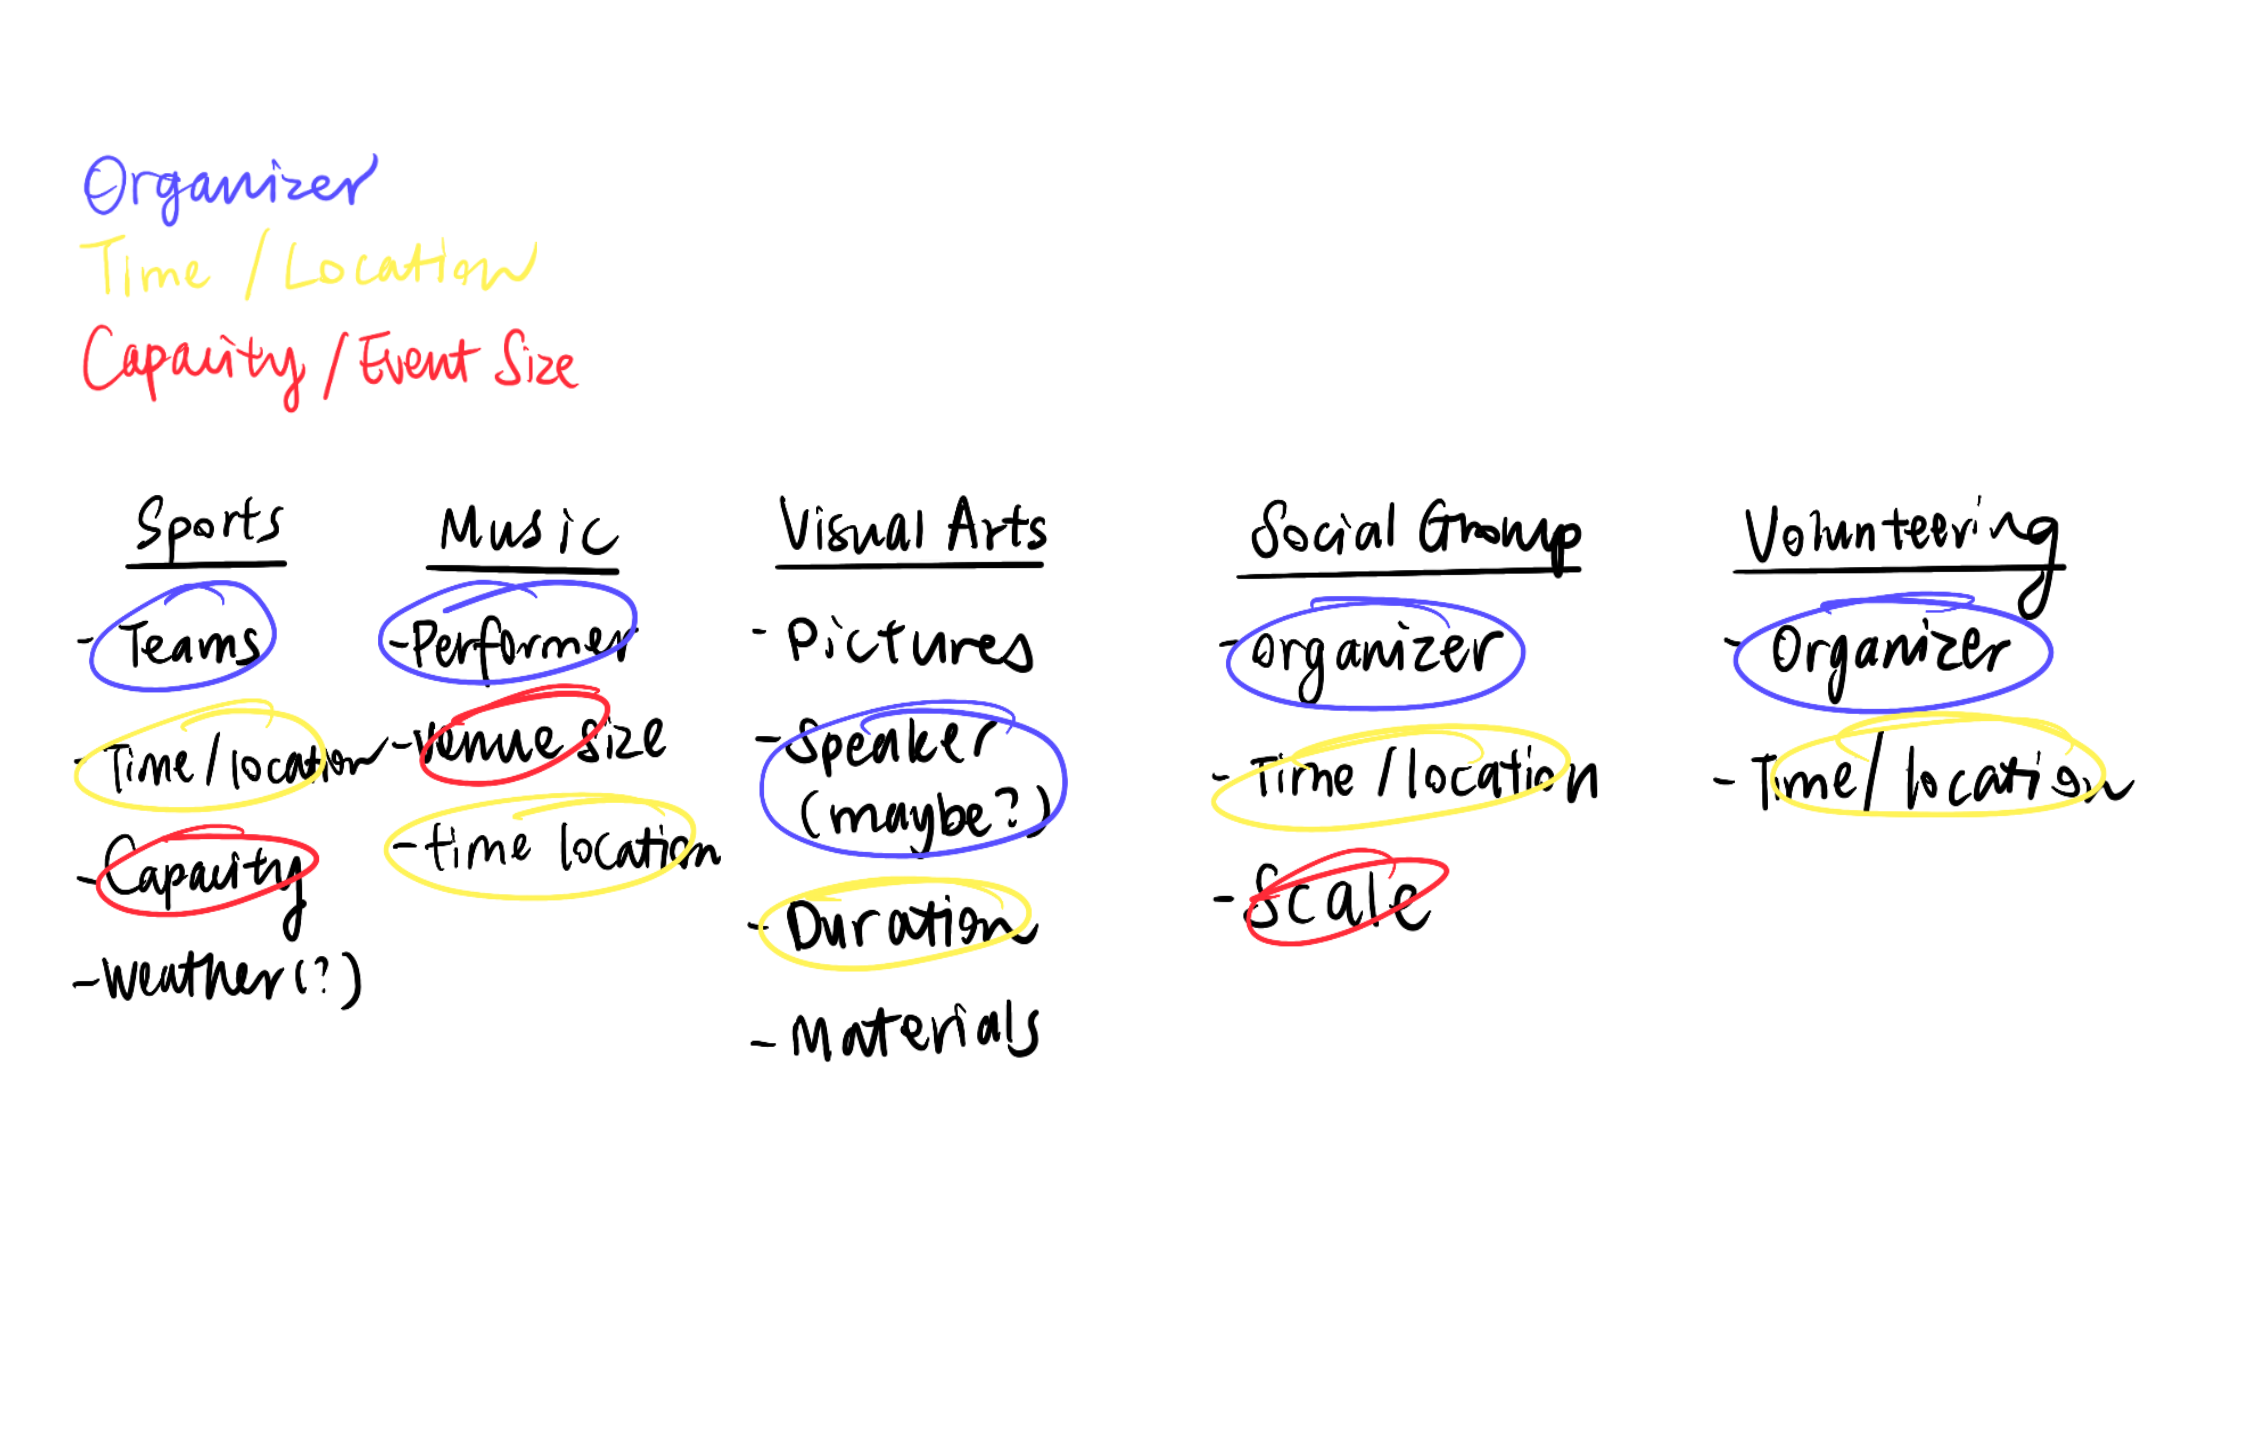 Organizer
Time / Location
Capacity / Event Size
Sports
- Teams
- Time / location
- Capacity
- Weather (?)
Music
- Performer
- Venue Size
- time location
Visual Arts
- Pictures
- Speaker
(maybe?)
- Duration
- Materials
Social Group
- organizer
- Time / location
- Scale
Volunteering
- Organizer
- Time / location